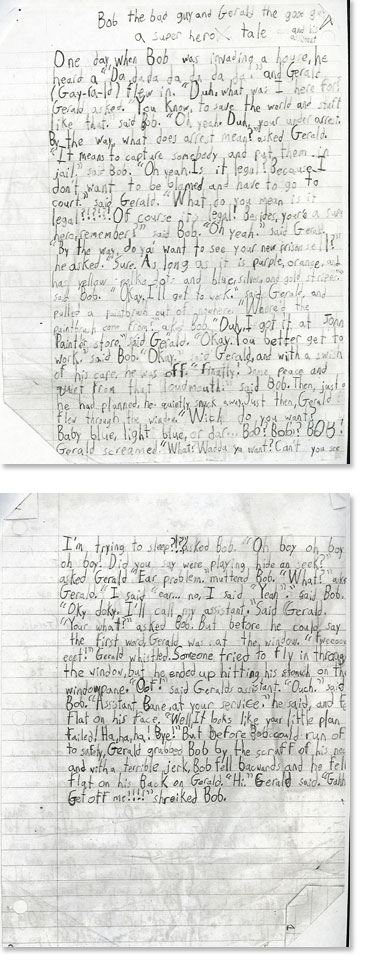 Bob the bad guy and Gerald the good guy
a super hero tale
One day when Bob was invading a house, he
heard a "Da, da da da da da da" and Gerald
(Gay-ra-ld) flew in. "Duh, what was I here for?"
Gerald asked. "You know, to save the world and stuff
like that." said Bob. "Oh yeah. Duh, your under arrest.
By the way, what does arrest mean?" asked Gerald.
"It means to capture somebody and put them in
jail" said Bob. "Oh yeah. Is it legal? Because I
don't want to be blamed and have to go to
court." said Gerald. "What do you mean is it
legal?!!!!! Of course it's legal! Besides, you're a super
hero, remember?" said Bob. "Oh yeah." said Gerald.
"By the way, do ya want to see your new prison cell?"
he asked. "Sure. As long as it is purple, orange, and
has yellow polka dots and blue, silver, and gold stripes."
said Bob. "Okay, I'll get to work." said Gerald, and
pulled a paintbrush out of nowhere. "Where'd the
paintbrush come from?" asked Bob. "Duh, I got it at John
Painter store," said Gerald. "Okay. You better get to
work." said Bob. "Okay." said Gerald, and with a swish
of his cape, he was off. "Finally. Some peace and
quiet from that loudmouth." said Bob. Then, just as
he had planned, he quietly snuck away. Just then, Gerald
flew through the window. "Wich do you want?
Baby blue, light blue, or dar... Bob? Bob? BOB!"
Gerald screamed. "What? Wadda ya want? Can't you see
I'm trying to sleep?!?" asked Bob. "Oh boy oh boy
oh boy! Did you say were playing hide an seek?"
asked Gerald "Ear problem." mutterd Bob. "What?" aske
Gerald. "I said "ear... no, I said "Yeah". said Bob.
"Oky doky. I'll call my assistant." said Gerald.
"Your what?" asked Bob. But before he could say
the first word, Gerald was at the window. "Tweeeee
eeet!" Gerald whistled. Someone tried to fly in throug
the window, but he ended up hitting his stomach on the
windowpane. "Oof!" said Geralds assistant. "Ouch." said
Bob. "Assistant Bane, at your service." he said, and
flat on his face. "Well It looks like your little plan
failed! Ha, ha, ha! Bye!" But before Bob could run of
to safety, Gerald grabbed Bob by the scruff of his nec
and with a terrible jerk, Bob fell bacwards and he fell
flat on his Back on Gerald. "Hi." Gerald said.
Get off me!!!!" shreiked Bob.